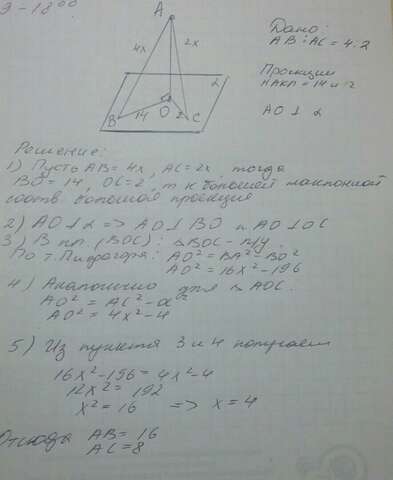 9-18⁰⁰
A
4x
2x
α
B
14
O
2
C
Дано:
AB:AC = 4:2
Проекции
накл = 14 и 2
AO ⊥ α
Решение:
1) Пусть AB = 4x, AC = 2x, тогда
BO = 14, OC = 2, т.к большей наклонной
соотв большая проекция
2) AO⊥α => AO⊥BO и AO⊥OC
3) В пл. (BOC): ΔBOC - п/у.
По т. Пифагора: AO² = BA² - BO²
AO² = 16x² - 196
4) Аналогично для ΔAOC.
AO² = AC² - OC²
AO² = 4x² - 4
5) Из пунктов 3 и 4 получаем
16x² - 196 = 4x² - 4
12x² = 192
x² = 16 => x = 4
Отсюда AB = 16
AC = 8